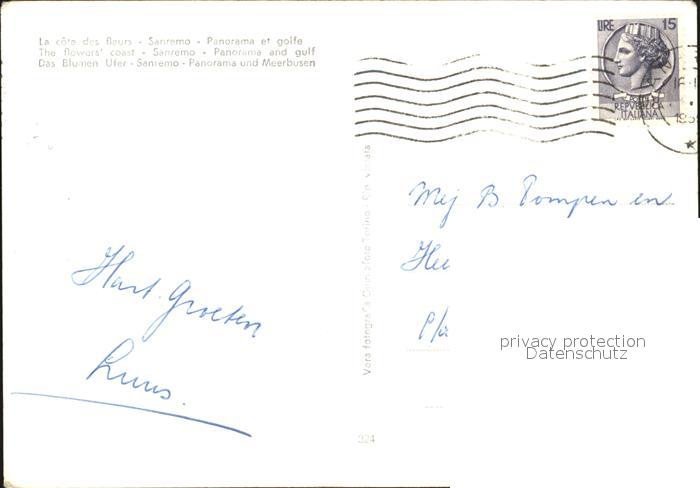 La côte des fleurs - Sanremo - Panorama et golfe
The flowers' coast - Sanremo - Panorama and gulf
Das Blumen Ufer - Sanremo - Panorama und Meerbusen
LIRE 15
REPVBBLICA
ITALIANA
Mej B. Pompen en
Hee
P/a
privacy protection
Datenschutz
Hart. Groeten
Luus.
Vera fotografia
324